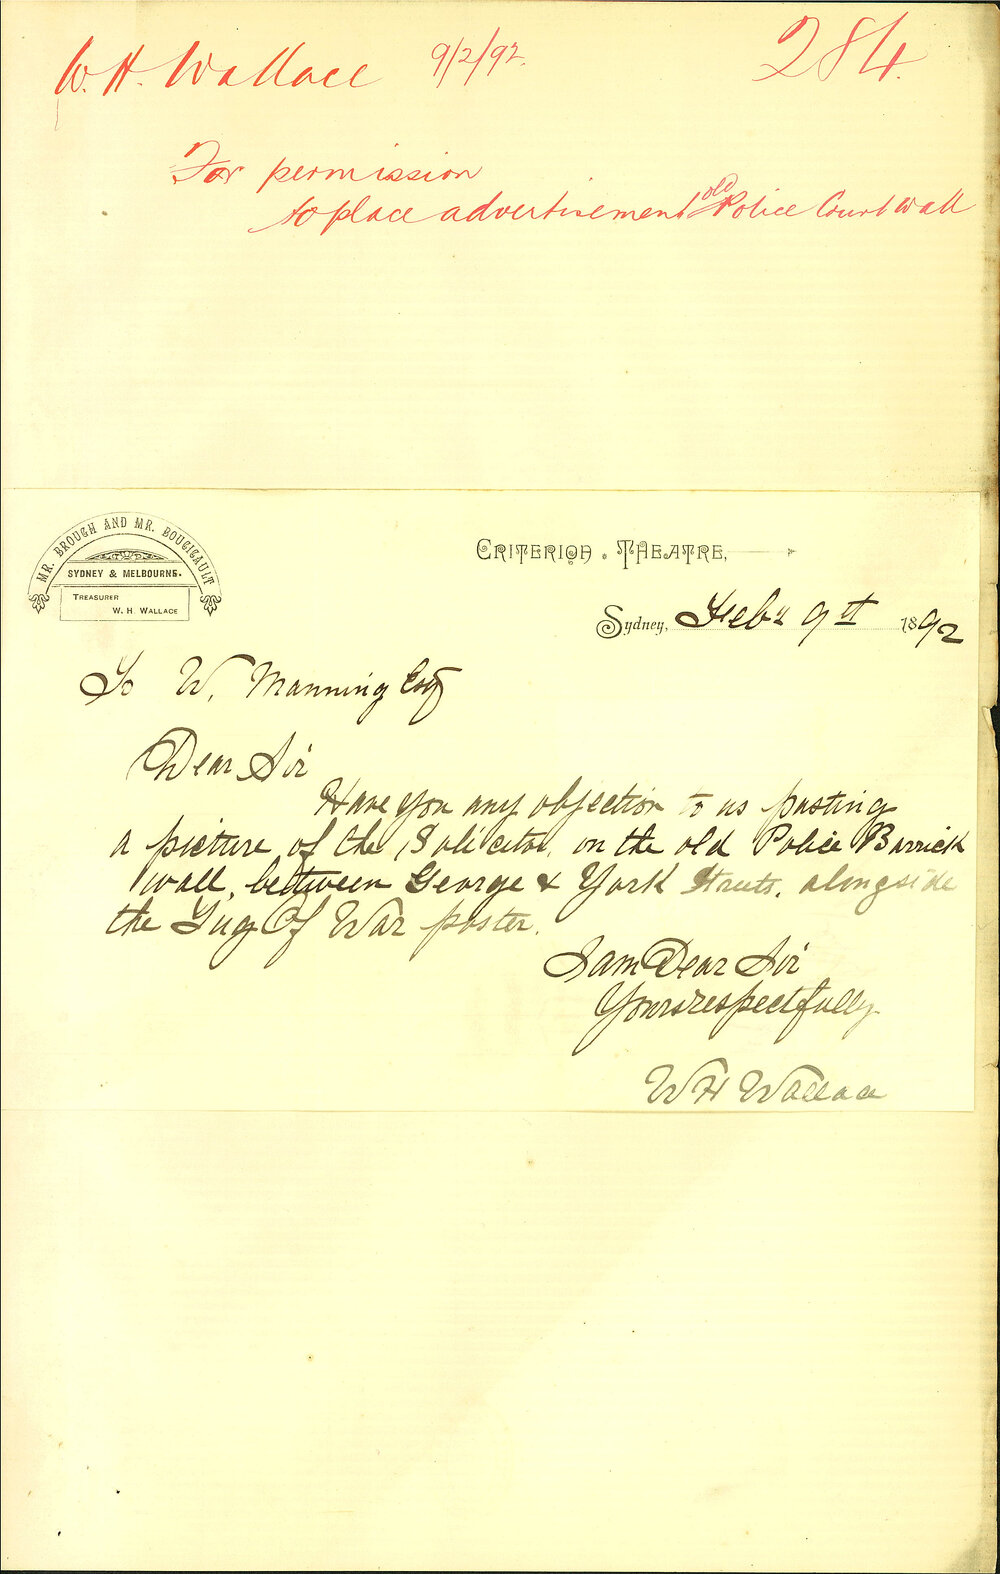 W. H. Wallace 9/2/92. 284.
For permission
to place advertisement old Police Court wall
MR. BROUGH AND MR. BOUCICAULT
SYDNEY & MELBOURNE.
TREASURER
W. H. WALLACE
CRITERION. THEATRE,
Sydney, Feby 9th 1892
To W. Manning Esq
Dear Sir
Have you any objection to us pasting
a picture of the Solicitor, on the old Police Barrick
wall, between George & York Streets, alongside
the Tug Of War poster.
I am Dear Sir
Yours respectfully
W H Wallace